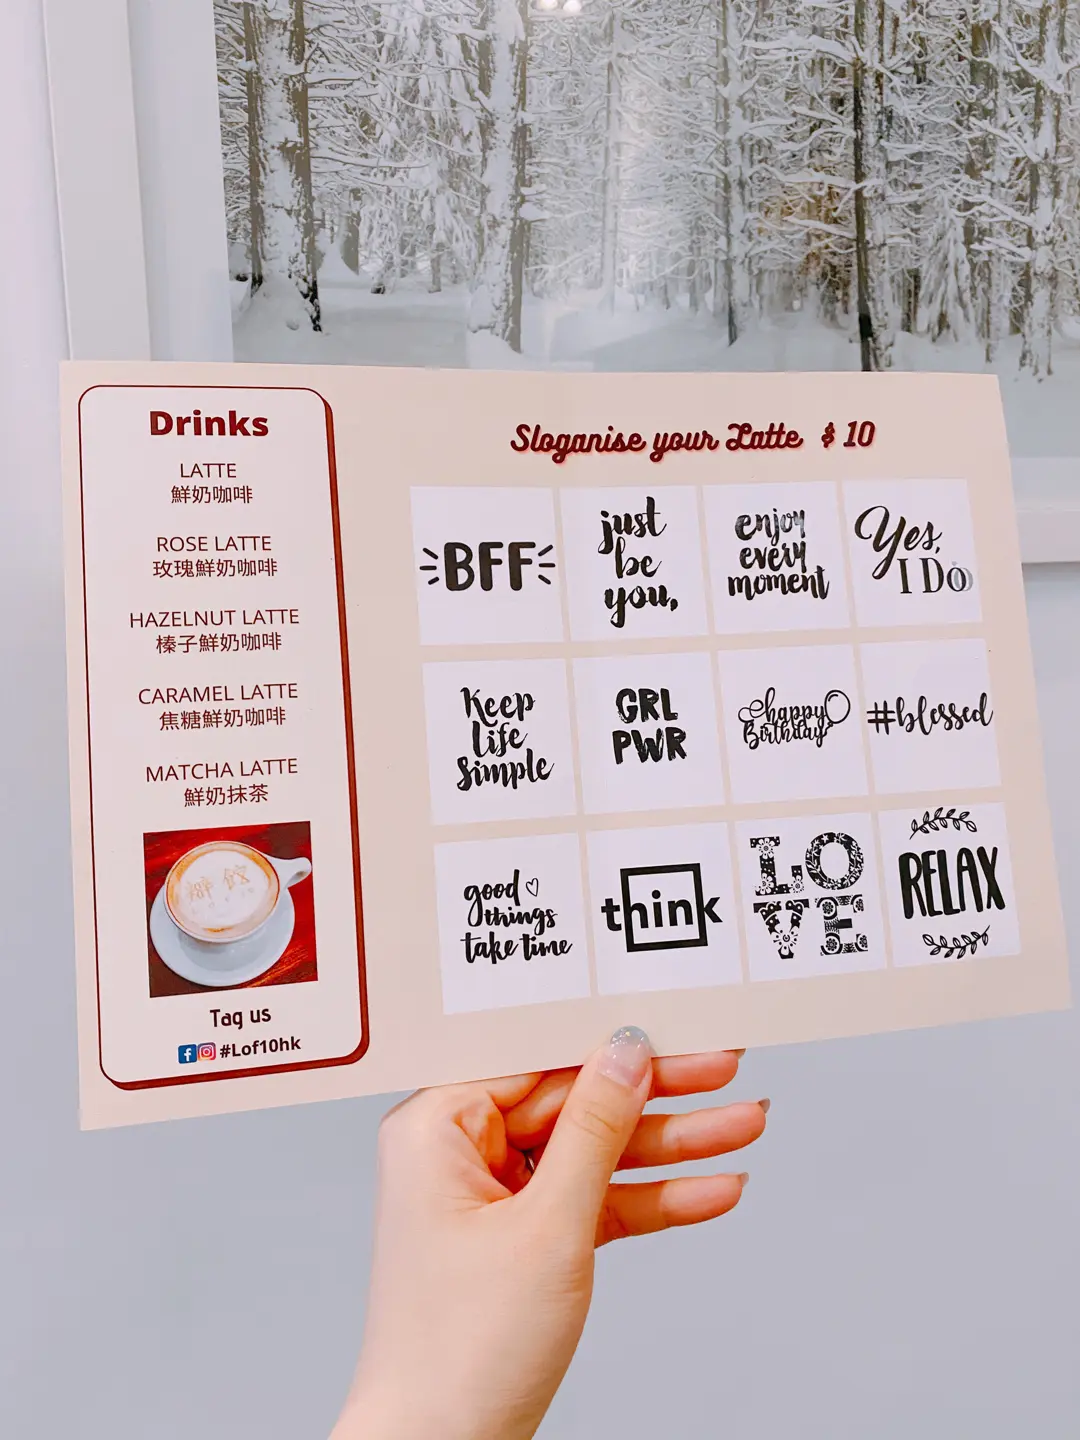 Drinks
LATTE
鮮奶咖啡
ROSE LATTE
玫瑰鮮奶咖啡
HAZELNUT LATTE
榛子鮮奶咖啡
CARAMEL LATTE
焦糖鮮奶咖啡
MATCHA LATTE
鮮奶抹茶
Tag us
#Lof10hk
Sloganise your Latte $ 10
BFF
just
be
you,
enjoy
every
moment
Yes,
I Do
Keep
life
simple
GRL
PWR
happy
Birthday
#blessed
good
things
take time
think
LO
VE
RELAX